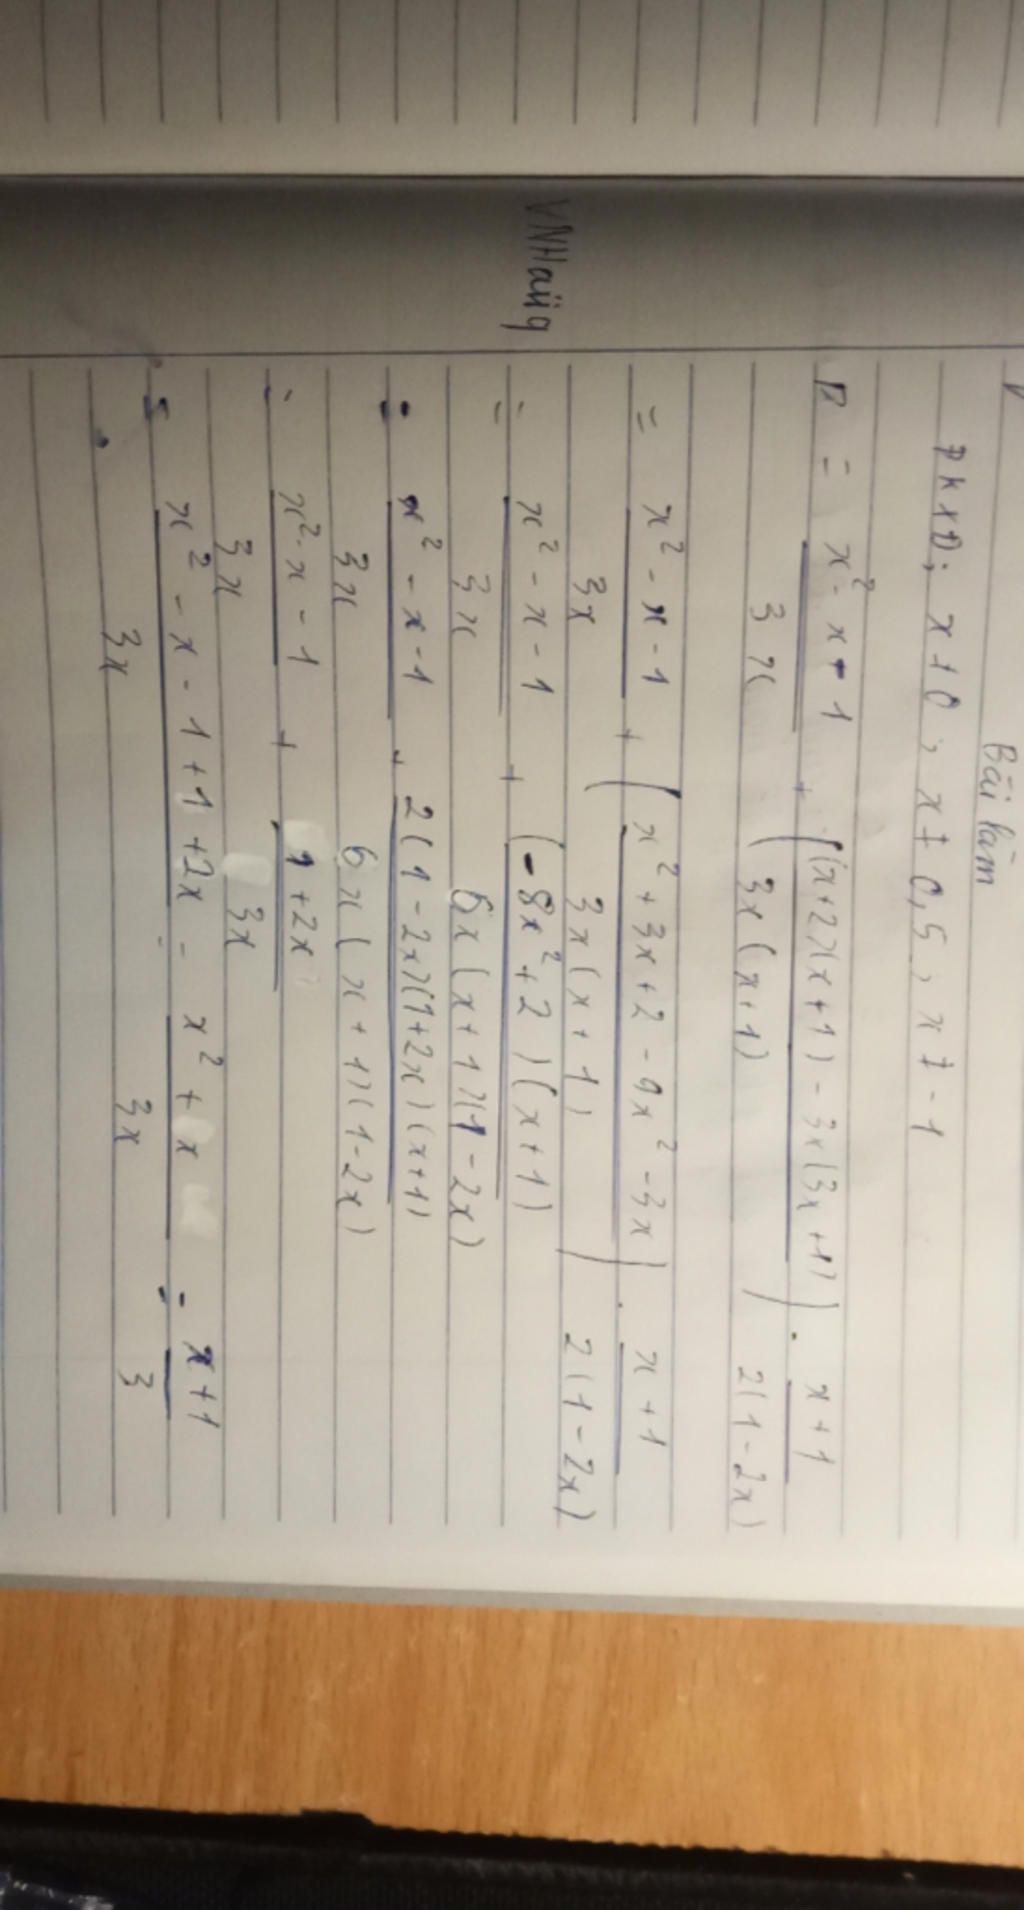 Bài làm
ĐKXĐ; x ≠ 0, x ≠ 0,5, x ≠ -1
P = x² - x - 1 / 3x + ( (x+2)(x+1) - 3x(3x+1) / 3x(x+1) ) . x+1 / 2(1-2x)
= x² - x - 1 / 3x + ( x² + 3x + 2 - 9x² - 3x / 3x(x+1) ) . x+1 / 2(1-2x)
= x² - x - 1 / 3x + (-8x² + 2)(x+1) / 6x(x+1)(1-2x)
= x² - x - 1 / 3x + 2(1-2x)(1+2x)(x+1) / 6x(x+1)(1-2x)
= x² - x - 1 / 3x + 1+2x / 3x
= x² - x - 1 + 1 + 2x / 3x = x² + x / 3x = x+1 / 3
VNHaiig